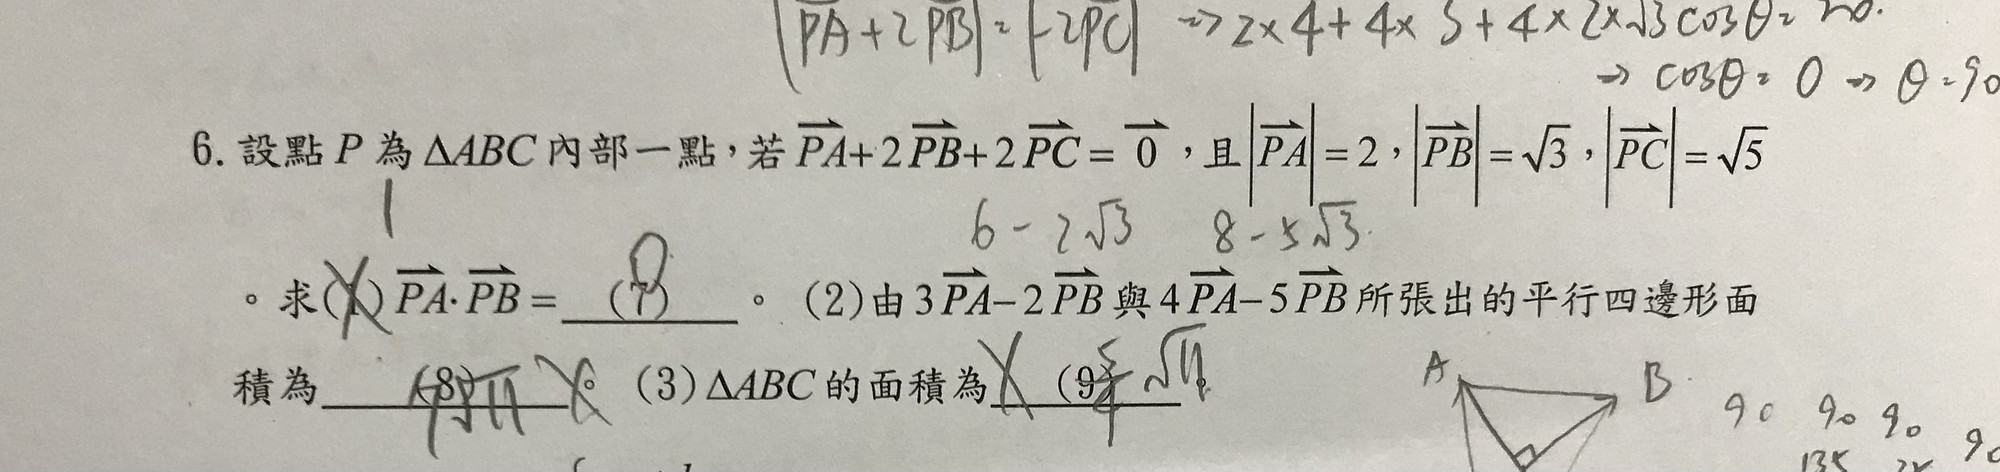 |PA+2PB|=|-2PC| → 2×4+4×3+4×2×√3cosθ=20.
→ cosθ=0 → θ=90
6. 設點 P 為 ΔABC 內部一點，若 PA+2PB+2PC=0，且|PA|=2，|PB|=√3，|PC|=√5
6-2√3 8-5√3
。求(1) PA·PB= (7) 。 (2)由 3PA-2PB 與 4PA-5PB 所張出的平行四邊形面
積為 (8) 。 (3) ΔABC 的面積為 (9) 。
A B
90 90 90 90
135